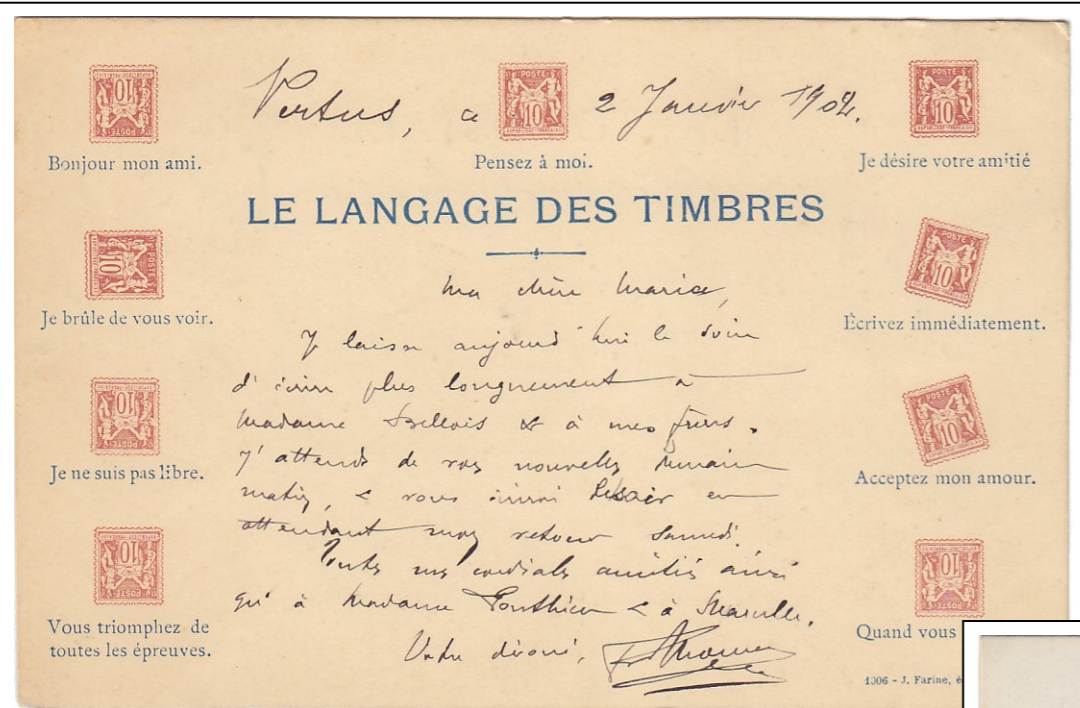 Vertus, ce 2 Janvier 1902.
Bonjour mon ami.
Pensez à moi.
Je désire votre amitié
LE LANGAGE DES TIMBRES
Je brûle de vous voir.
Écrivez immédiatement.
Je ne suis pas libre.
Acceptez mon amour.
Vous triomphez de
toutes les épreuves.
Quand vous
Ma chère Maria,
Je laisse aujourd'hui le soin
d'écrire plus longuement à
Madame & à mes frères.
J'attends de vos nouvelles demain
matin, & vous écrirai en
attendant mon retour Samedi.
Toutes mes cordiales amitiés ainsi
qu'à Madame & à
Votre dévoué,
1006 - J. Farine, é
POSTE
10
REPUBLIQUE FRANÇAISE